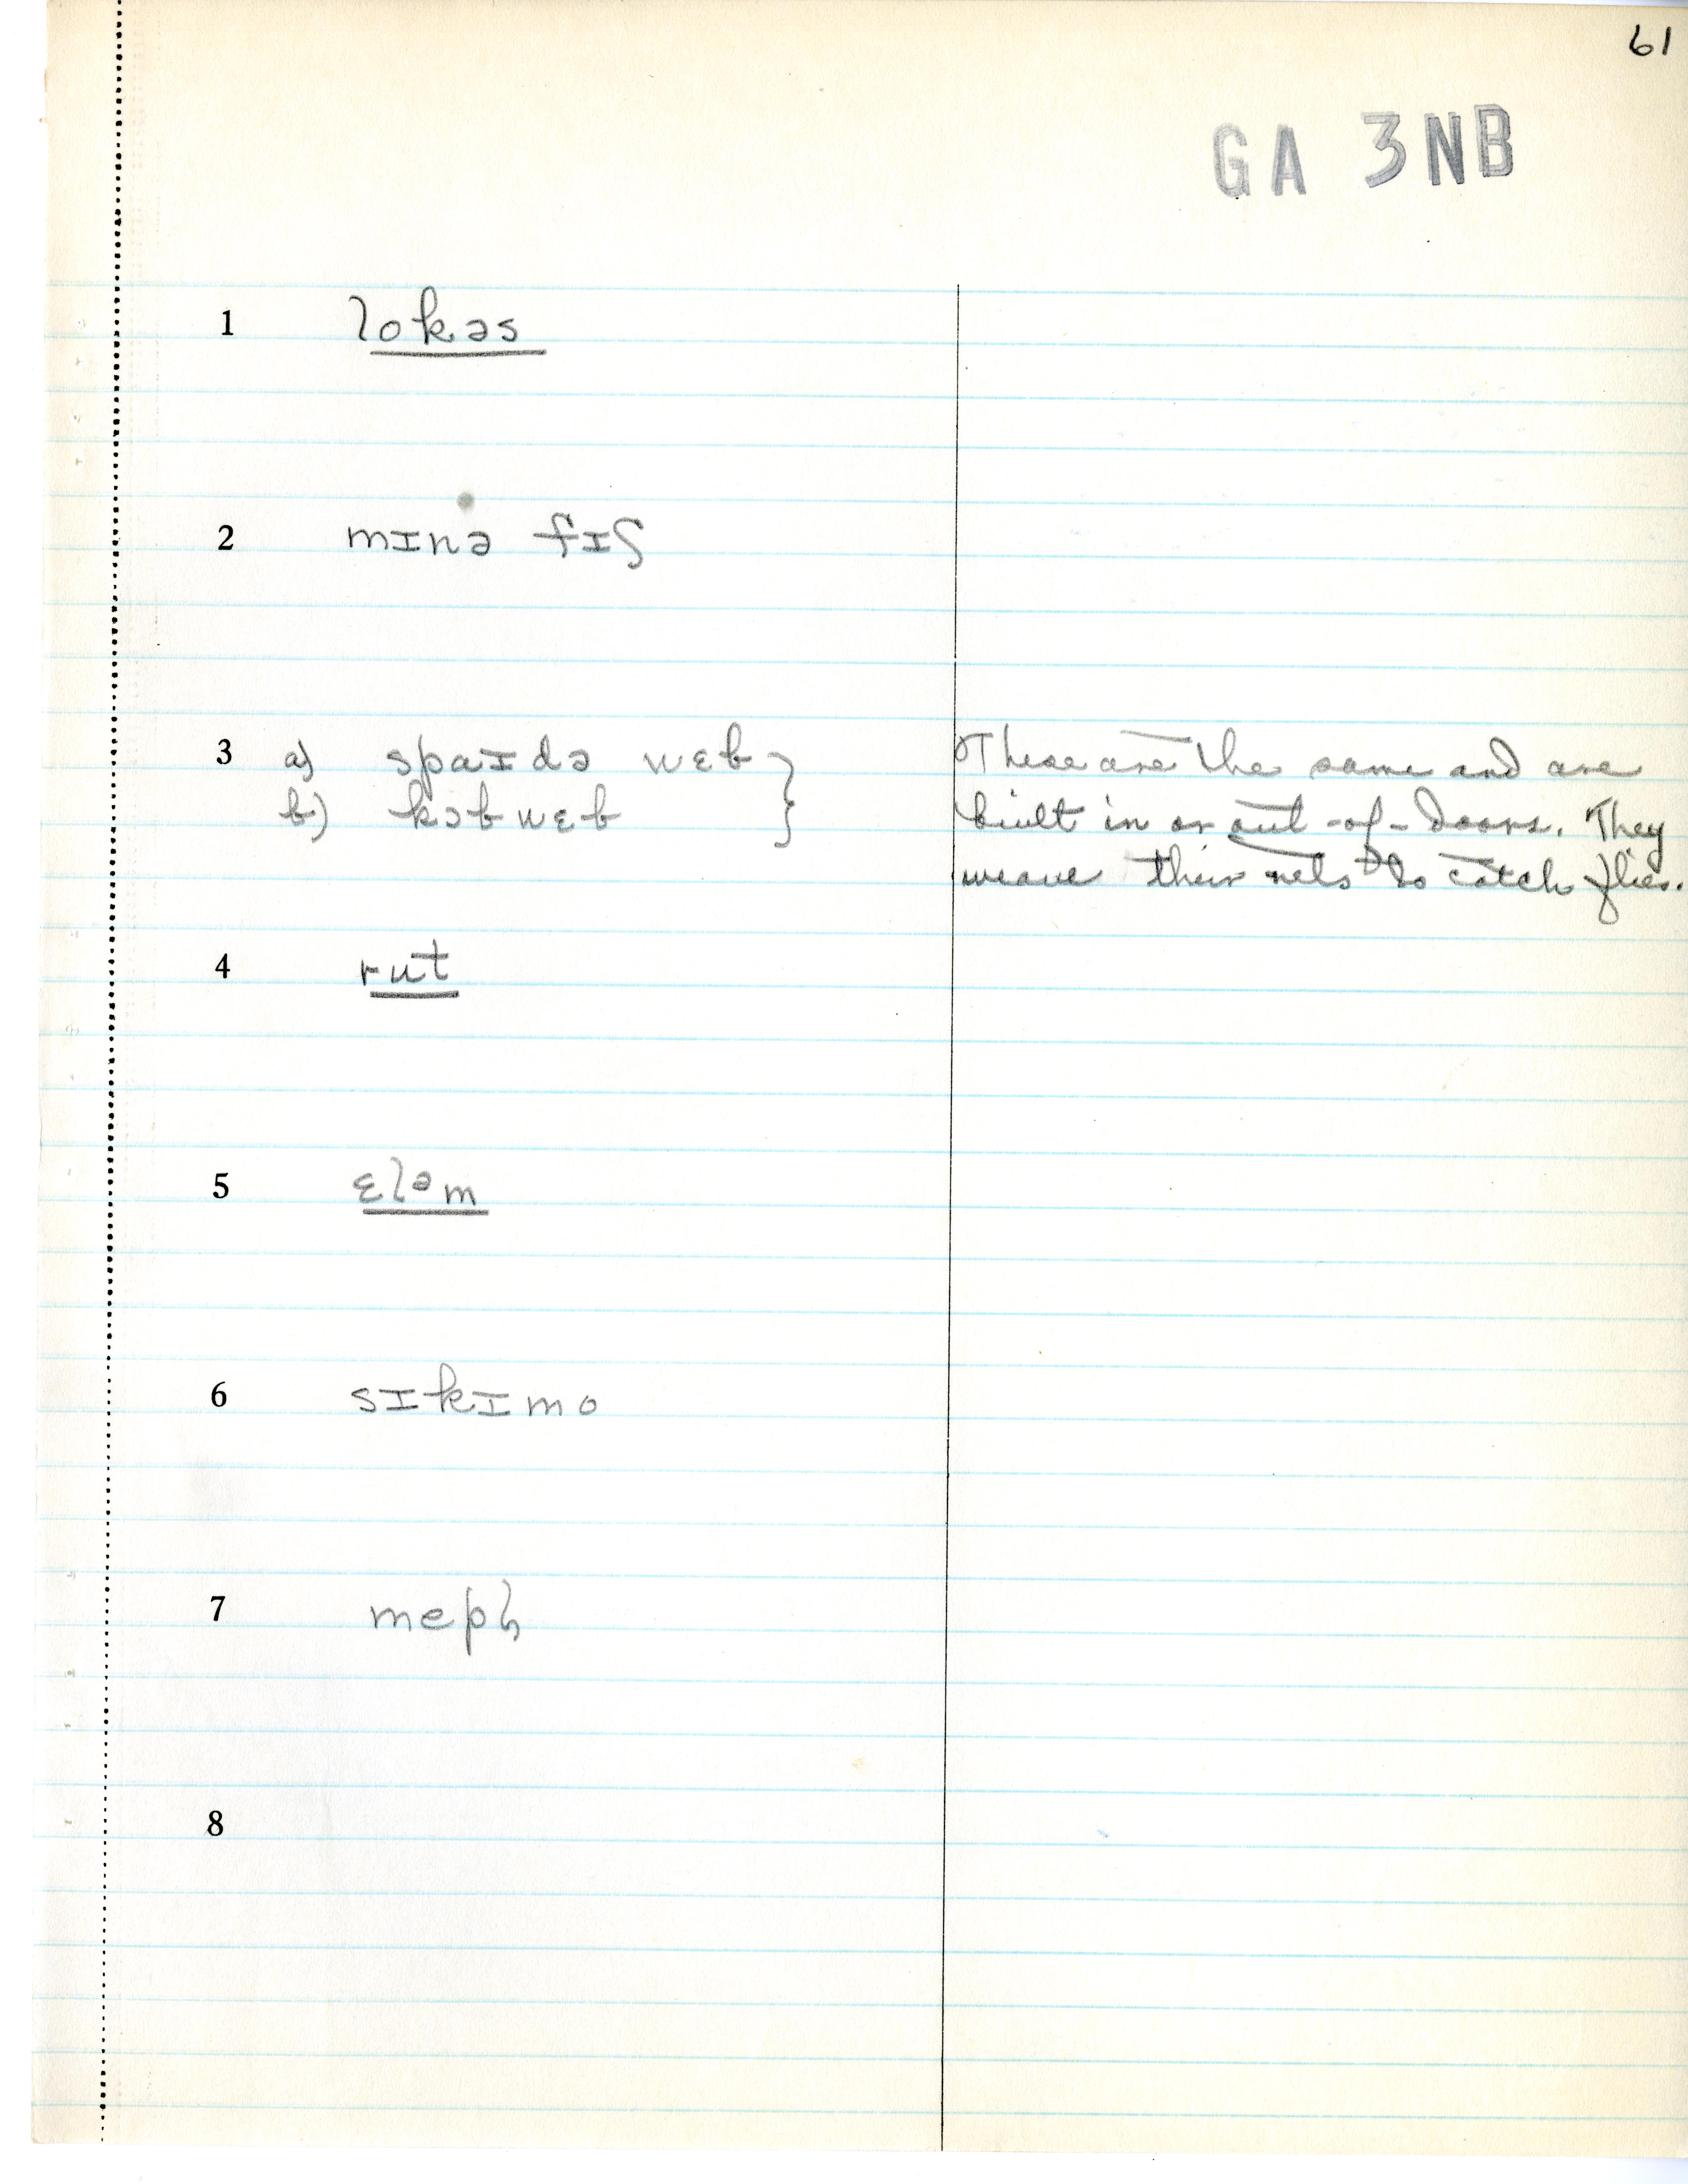 61
GA 3NB
1 lokəs
2 mɪnə fɪʃ
3 a) spaɪdə wɛb } These are the same and are
b) kɔbwɛb built in or out-of-doors. They
weave their nets to catch flies.
4 rut
5 ɛləm
6 sɪkɪmo
7 mepɫ
8